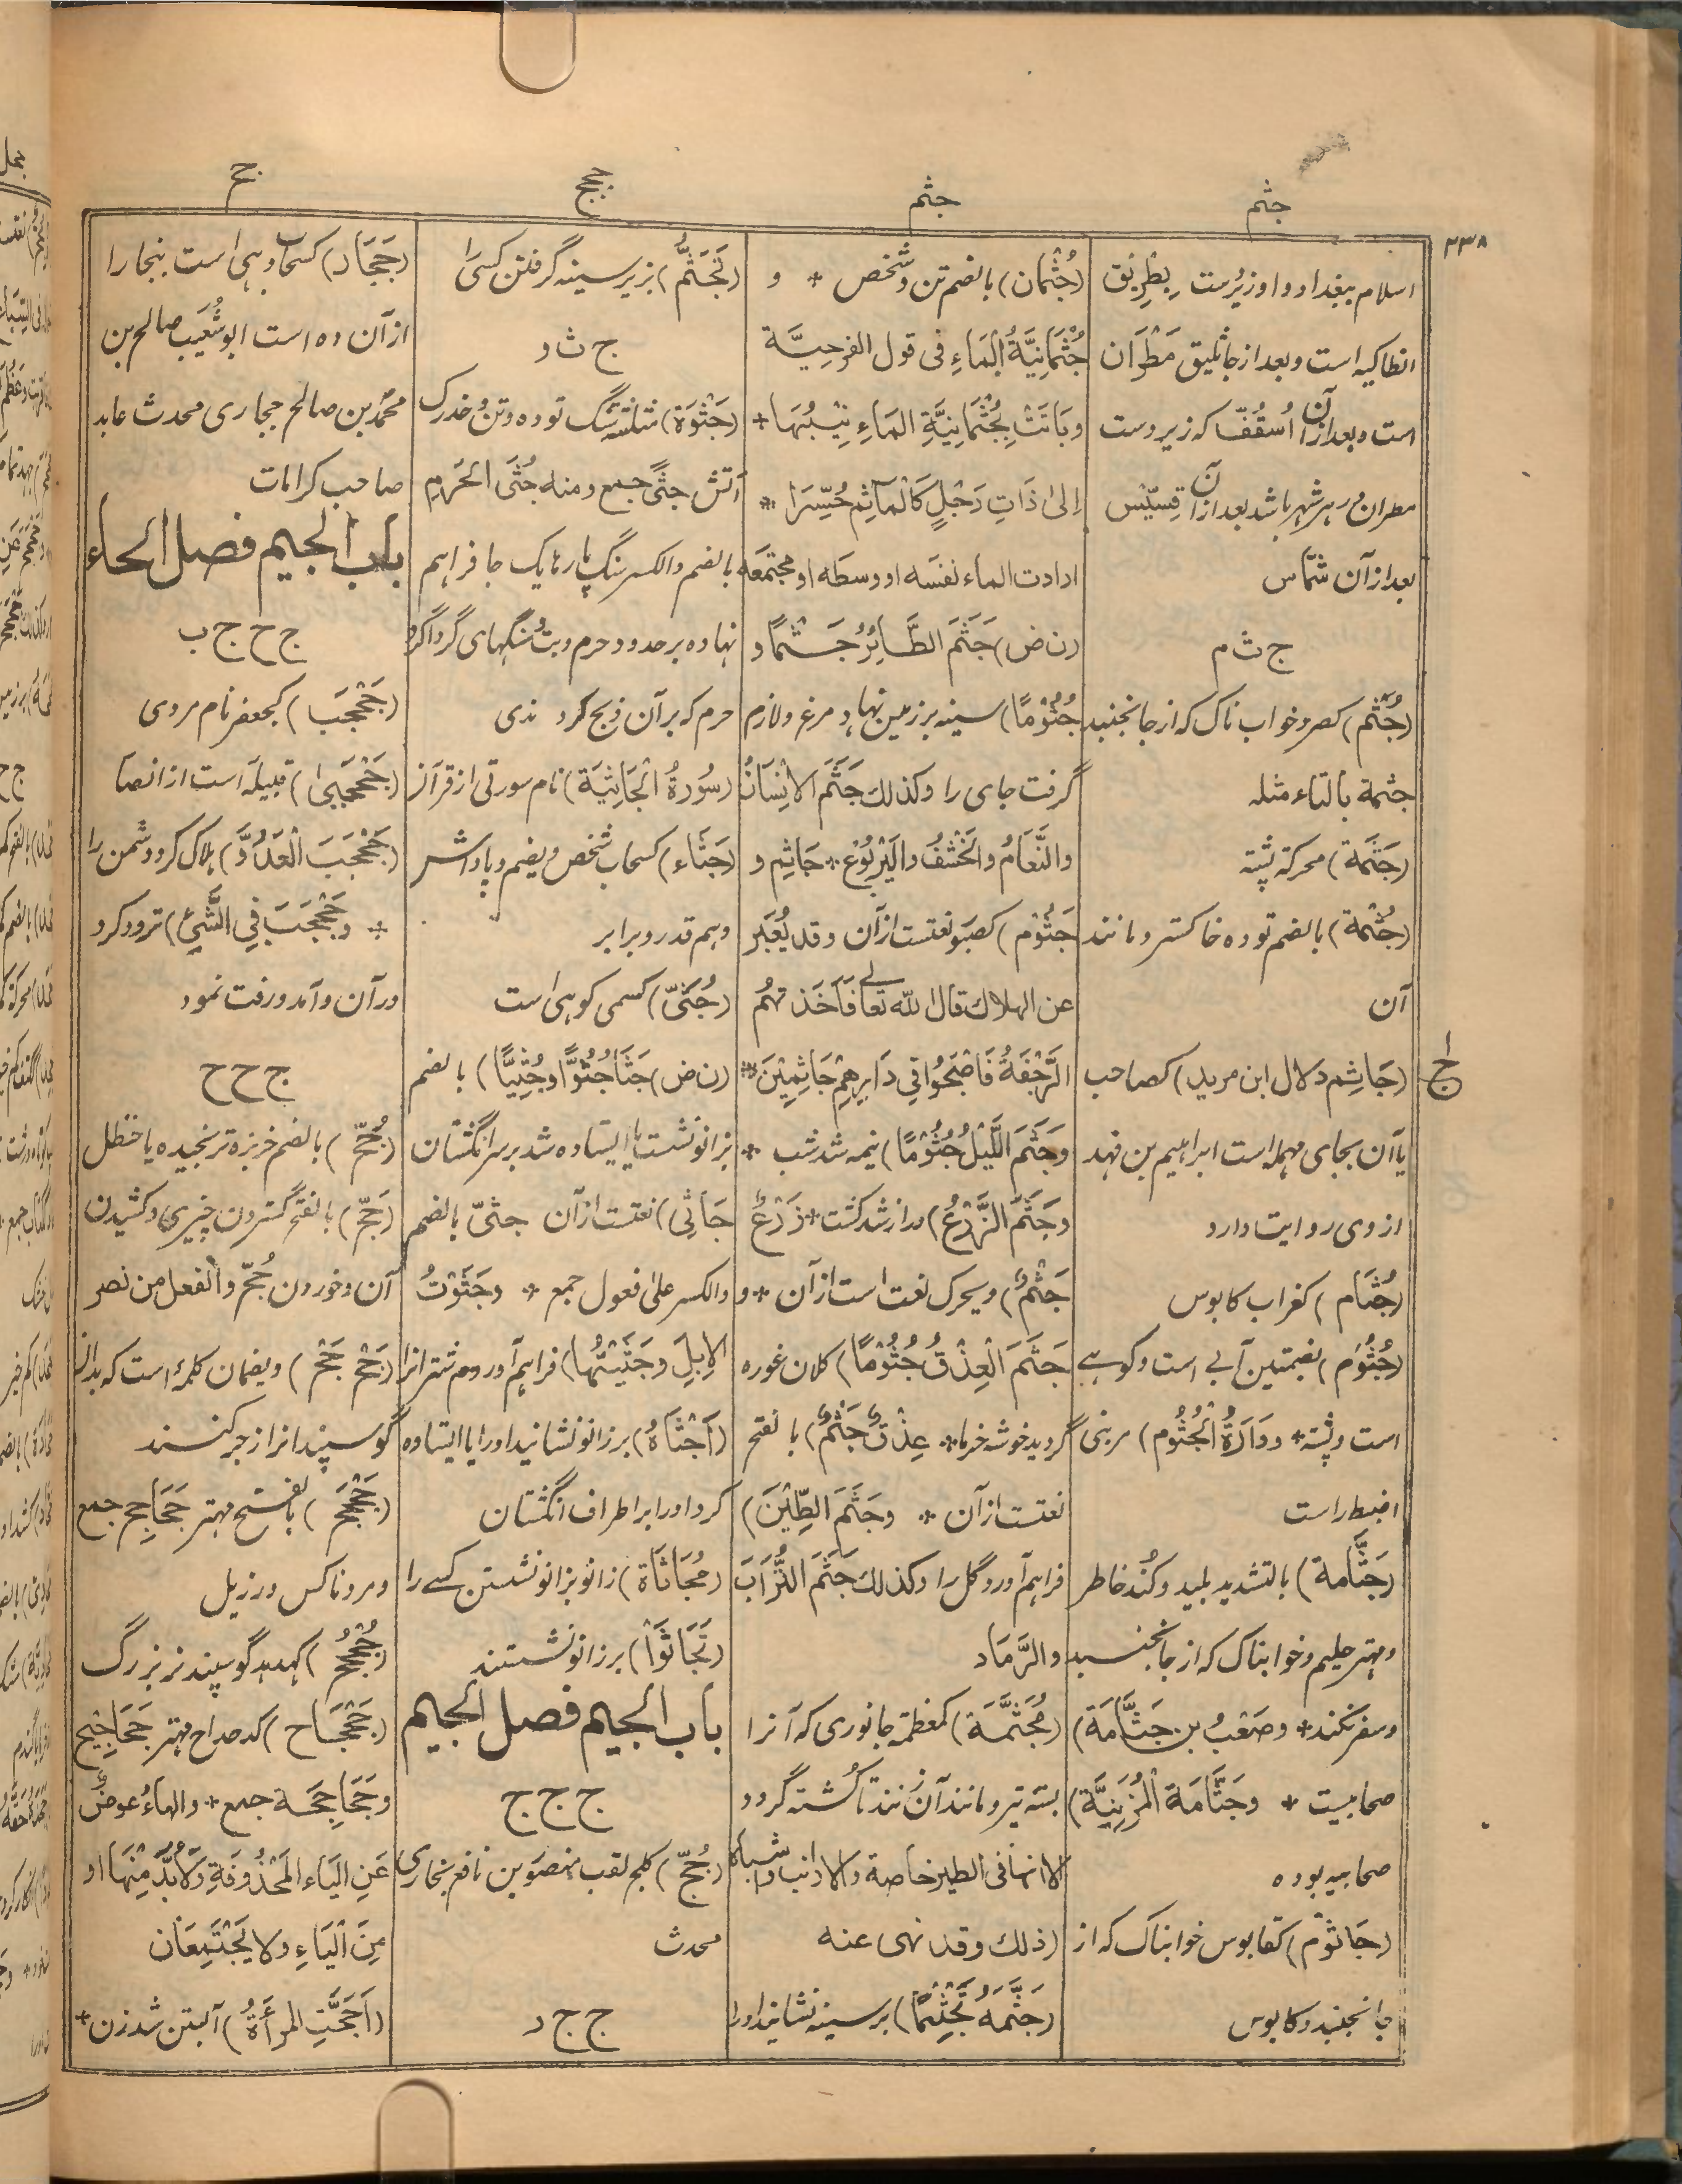 ۲۳۸
جثم
جثم
ججج
جح
اسلام ببغداد و او زیردست بطریق
انطاکیه است و بعد از جاثلیق مَطْرَان
است و بعد ازان اُسقُفّ که زیردست
مطران در هر شهر باشد بعد ازان قِسیّس
بعد ازان شمّاس
ج ث م
(جُثَم) کصرد خواب ناک که از جا نجنبد
جثمة بالتاء مثله
(جَثَمة) محرکة پشته
(جُثْمة) بالضم توده خاکستر و مانند
آن
(جَاثِم دلال ابن مرید) کصاحب
یا آن بجای مهمله است ابراهیم بن فهد
از وی روایت دارد
(جُثَام) کغراب کابوس
(جُثُوم) بضمتین آبی است و کوهے
است و پشته + و دَارَةُ الْجُثُوم) مر بنی
اضبط راست
(جَثَّامة) بالتشدید بلید و کُند خاطر
و مهتر حلیم و خوابناک که از جا نجنبد
و سفر نکند + و صَعْبُ بن جَثَّامَة)
صحابیست + وجَثَّامَة الْمُزَنِیَّة)
صحابیه بوده
(جَاثُوْم) کقابوس خوابناک که از
جا نجنبد و کابوس
ج
(جُثْمان) بالضم تن و شخص + و
جُثْمَانِیَّةُ الْمَاءِ فی قول الفرحیَّة
وبَاتَتْ بِجُثْمَانِیَّةِ المَاءِ نِیْبُهَا +
اِلیٰ ذَاتِ رَحْلٍ کَالْمآتِمِ حُسَّرَا +
ارادت الماء نفسَه او وسطَه او مجتمعَه
(ن ض) جَثَمَ الطَّائِرُ جَثْمًا و
جُثُوْمًا) سینه بر زمین نهاد مرغ و لازم
گرفت جای را وکذلك جَثَمَ الاِنْسَانُ
والنَّعَامُ والخَشْفُ والیَرْبُوْعُ + جَاثِم و
جَثُوْم) کصبو نعتست ازان وقد یُعَبَّر
عن الهلاك قال الله تعالے فَاَخَذَتْهُمُ
الرَّجْفَةُ فَاَصْبَحُوْا فِي دَارِهِمْ جَاثِمِیْنَ +
وَجَثَمَ اللَّیْلُ جُثُوْمًا) نیمه شد شب +
وجَثَمَ الزَّرْعُ) دراز شد کشت + زَرْعٌ
جَثْمٌ) ویحرک نعت است ازآن + و
جَثَمَ الْعِذْقُ جُثُوْمًا) کلان غوره
گردید خوشه خرما + عِذْقٌ جَثْمٌ) بالفتح
نعتست ازآن + وجَثَمَ الطِّیْنَ)
فراهم آورد گل را وکذلك جَثَمَ التُّرَابَ
والرَّمَاد
(مُجَثَّمَة) کمعظمة جانوری که آنرا
بسته تیر و مانند آن زنند تا کشته گردد
الا انها فی الطیر خاصة والارانب واشباه
(ذلك وقد نهی عنه
(جَثَّمَهُ تَجْثِیْمًا) بر سینه نشانید او را
(تَجَثُّم) بزیر سینه گرفتن کسی را
ج ث و
(جَثْوَة) مثلثة سنگ توده و تن و خدرک
آتش جثًی جمع ومنه جُثَی الحَرَمِ
بالضم والکسر سنگ پارها یک جا فراهم
نهاده بر حدود حرم و بت و سنگهای گرداگرد
حرم که بران ذبح کردندی
(سُورَةُ الْجَاثِیَة) نام سورتی از قرآن
(جَثَاء) کسحاب شخص و یضم و پاداش
و هم قدر و برابر
(جُثَیّ) کسمی کوهی است
(ن ض) جَثَا جُثُوًّا وجُثِیًّا) بالضم
بزانو نشست یا ایستاده شد بر سر انگشتان
جَاثِی) نعتست ازآن جثیّ بالضم
والکسر علی فعول جمع + وجَثَوْتُ
الاِبِلَ وجَثَیْتُهَا) فراهم آوردم شتران را
(اَجْثَاهُ) بر زانو نشانید او را یا ایستاده
کرد او را بر اطراف انگشتان
(مُجَاثَاة) زانو بزانو نشستن کسے را
(تَجَاثَوْا) بر زانو نشستند
باب الجیم فصل الجیم
ج ج ج
(جُجّ) کلج لقب منصور بن نافع بخاری
محدث
ج ج ر
(جَجَار) کسحاب دهی است ببخارا
ازآن ده است ابو شُعَیب صالح بن
محمّد بن صالح ججاری محدث عابد
صاحب کرامات
باب الجیم فصل الحاء
ج ح ج ب
(جَحْجَب) کجعفر نام مردی
(جَحْجَبیٰ) قبیلۀ است از انصا
(جَحْجَبَ الْعَدُوَّ) هلاک کرد دشمن را
+ وجَحْجَبَ فِي الشَّيْءِ) تردد کرد
درآن و آمد و رفت نمود
ج ح ح
(جُحّ) بالضم خربزه ترنجیده یا حنظل
(جَحّ) بالفتح گستردن چیزی و کشیدن
آن و خوردن جُحّ والفعل من نصر
(جَحْ جَحْ) ویضمان کلمۀ است که بدان
گوسپندان را زجر کنند
(جَحْجَح) بالفتح مهتر جَحَاجِح جمع
و مرد ناکس و رزیل
(جُحْجُح) کهدهد گوسپند نر بزرگ
(جَحْجَاح) کدحداح مهتر جَحَاجِیْح
وجَحَاجِحَة جمع + والهاءُ عوضٌ
عَنِ الیَاء المَحْذُوفَةِ ولَابُدَّ مِنْهَا او
مِنَ الْیَاءِ ولا یَجْتَمِعَان
(اَجَحَّتِ المرأَةُ) آبستن شد زن +